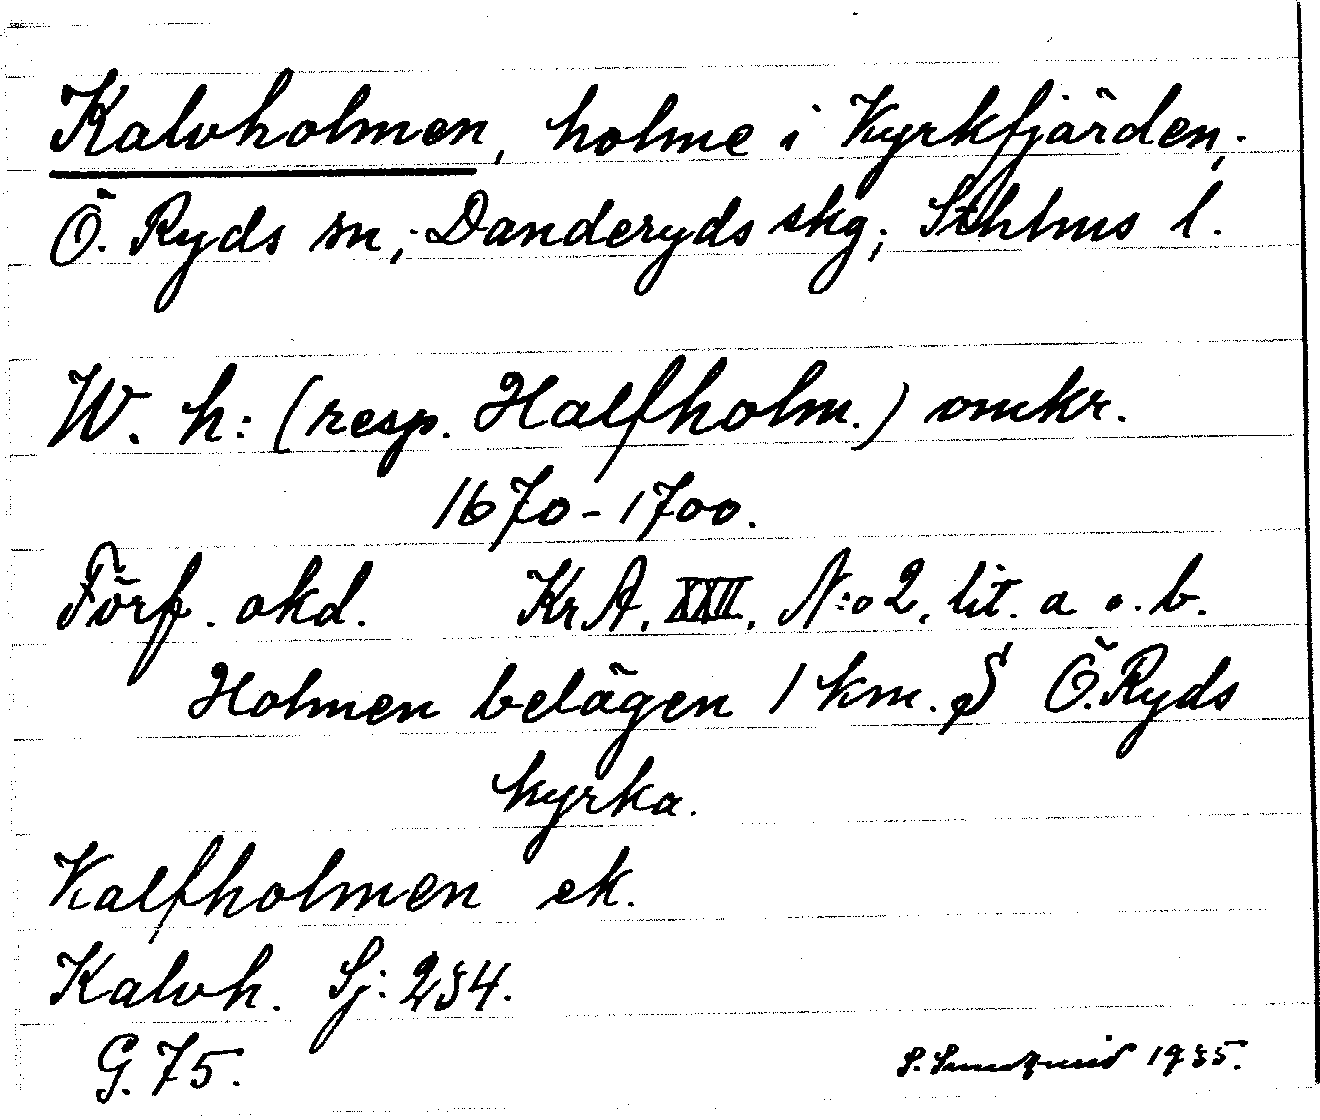 Kalvholmen, holme i Kyrkfjärden,
Ö. Ryds sn; Danderyds skg; Sthlms l.
W. h: (resp. Halfholm.) omkr.
1670-1700.
Förf. okd. KrA. XXII. N:o 2. lit. a o. b.
Holmen belägen 1 km. S Ö. Ryds
kyrka.
Kalfholmen ek.
Kalvh. Sj: 234.
G. 75.
S. 1935.